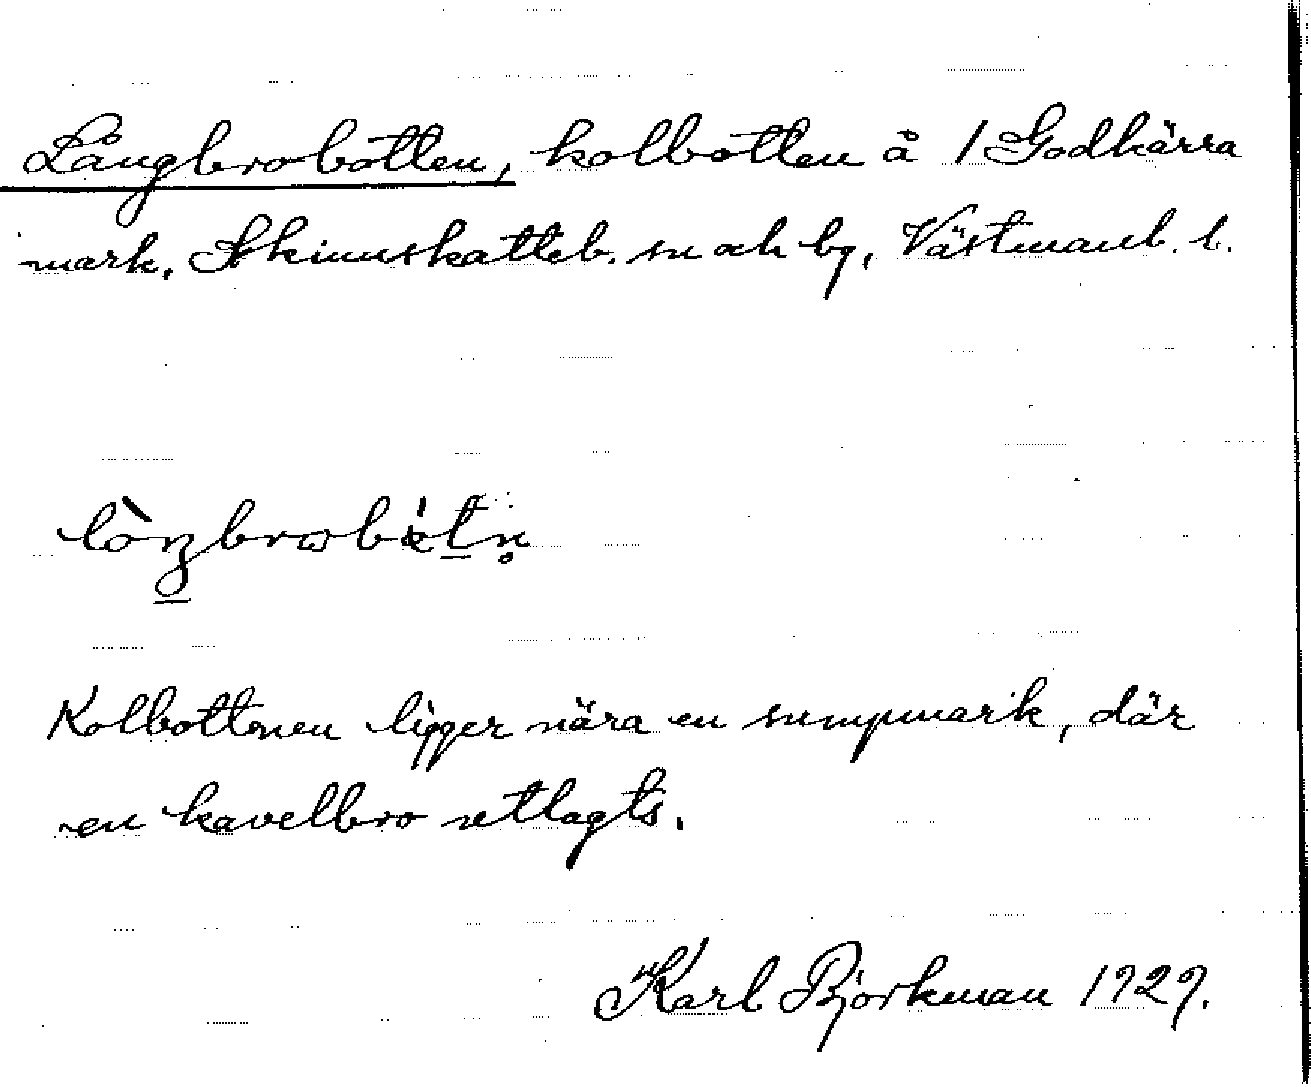 Långbrobotten, kolbotten å 1 Godkärra
mark, Skinnskatteb. sn och bg, Västmanl. l.
Kolbottnen ligger nära en sumpmark, där
en kavelbro utlagts.
Karl Björkman 1929.